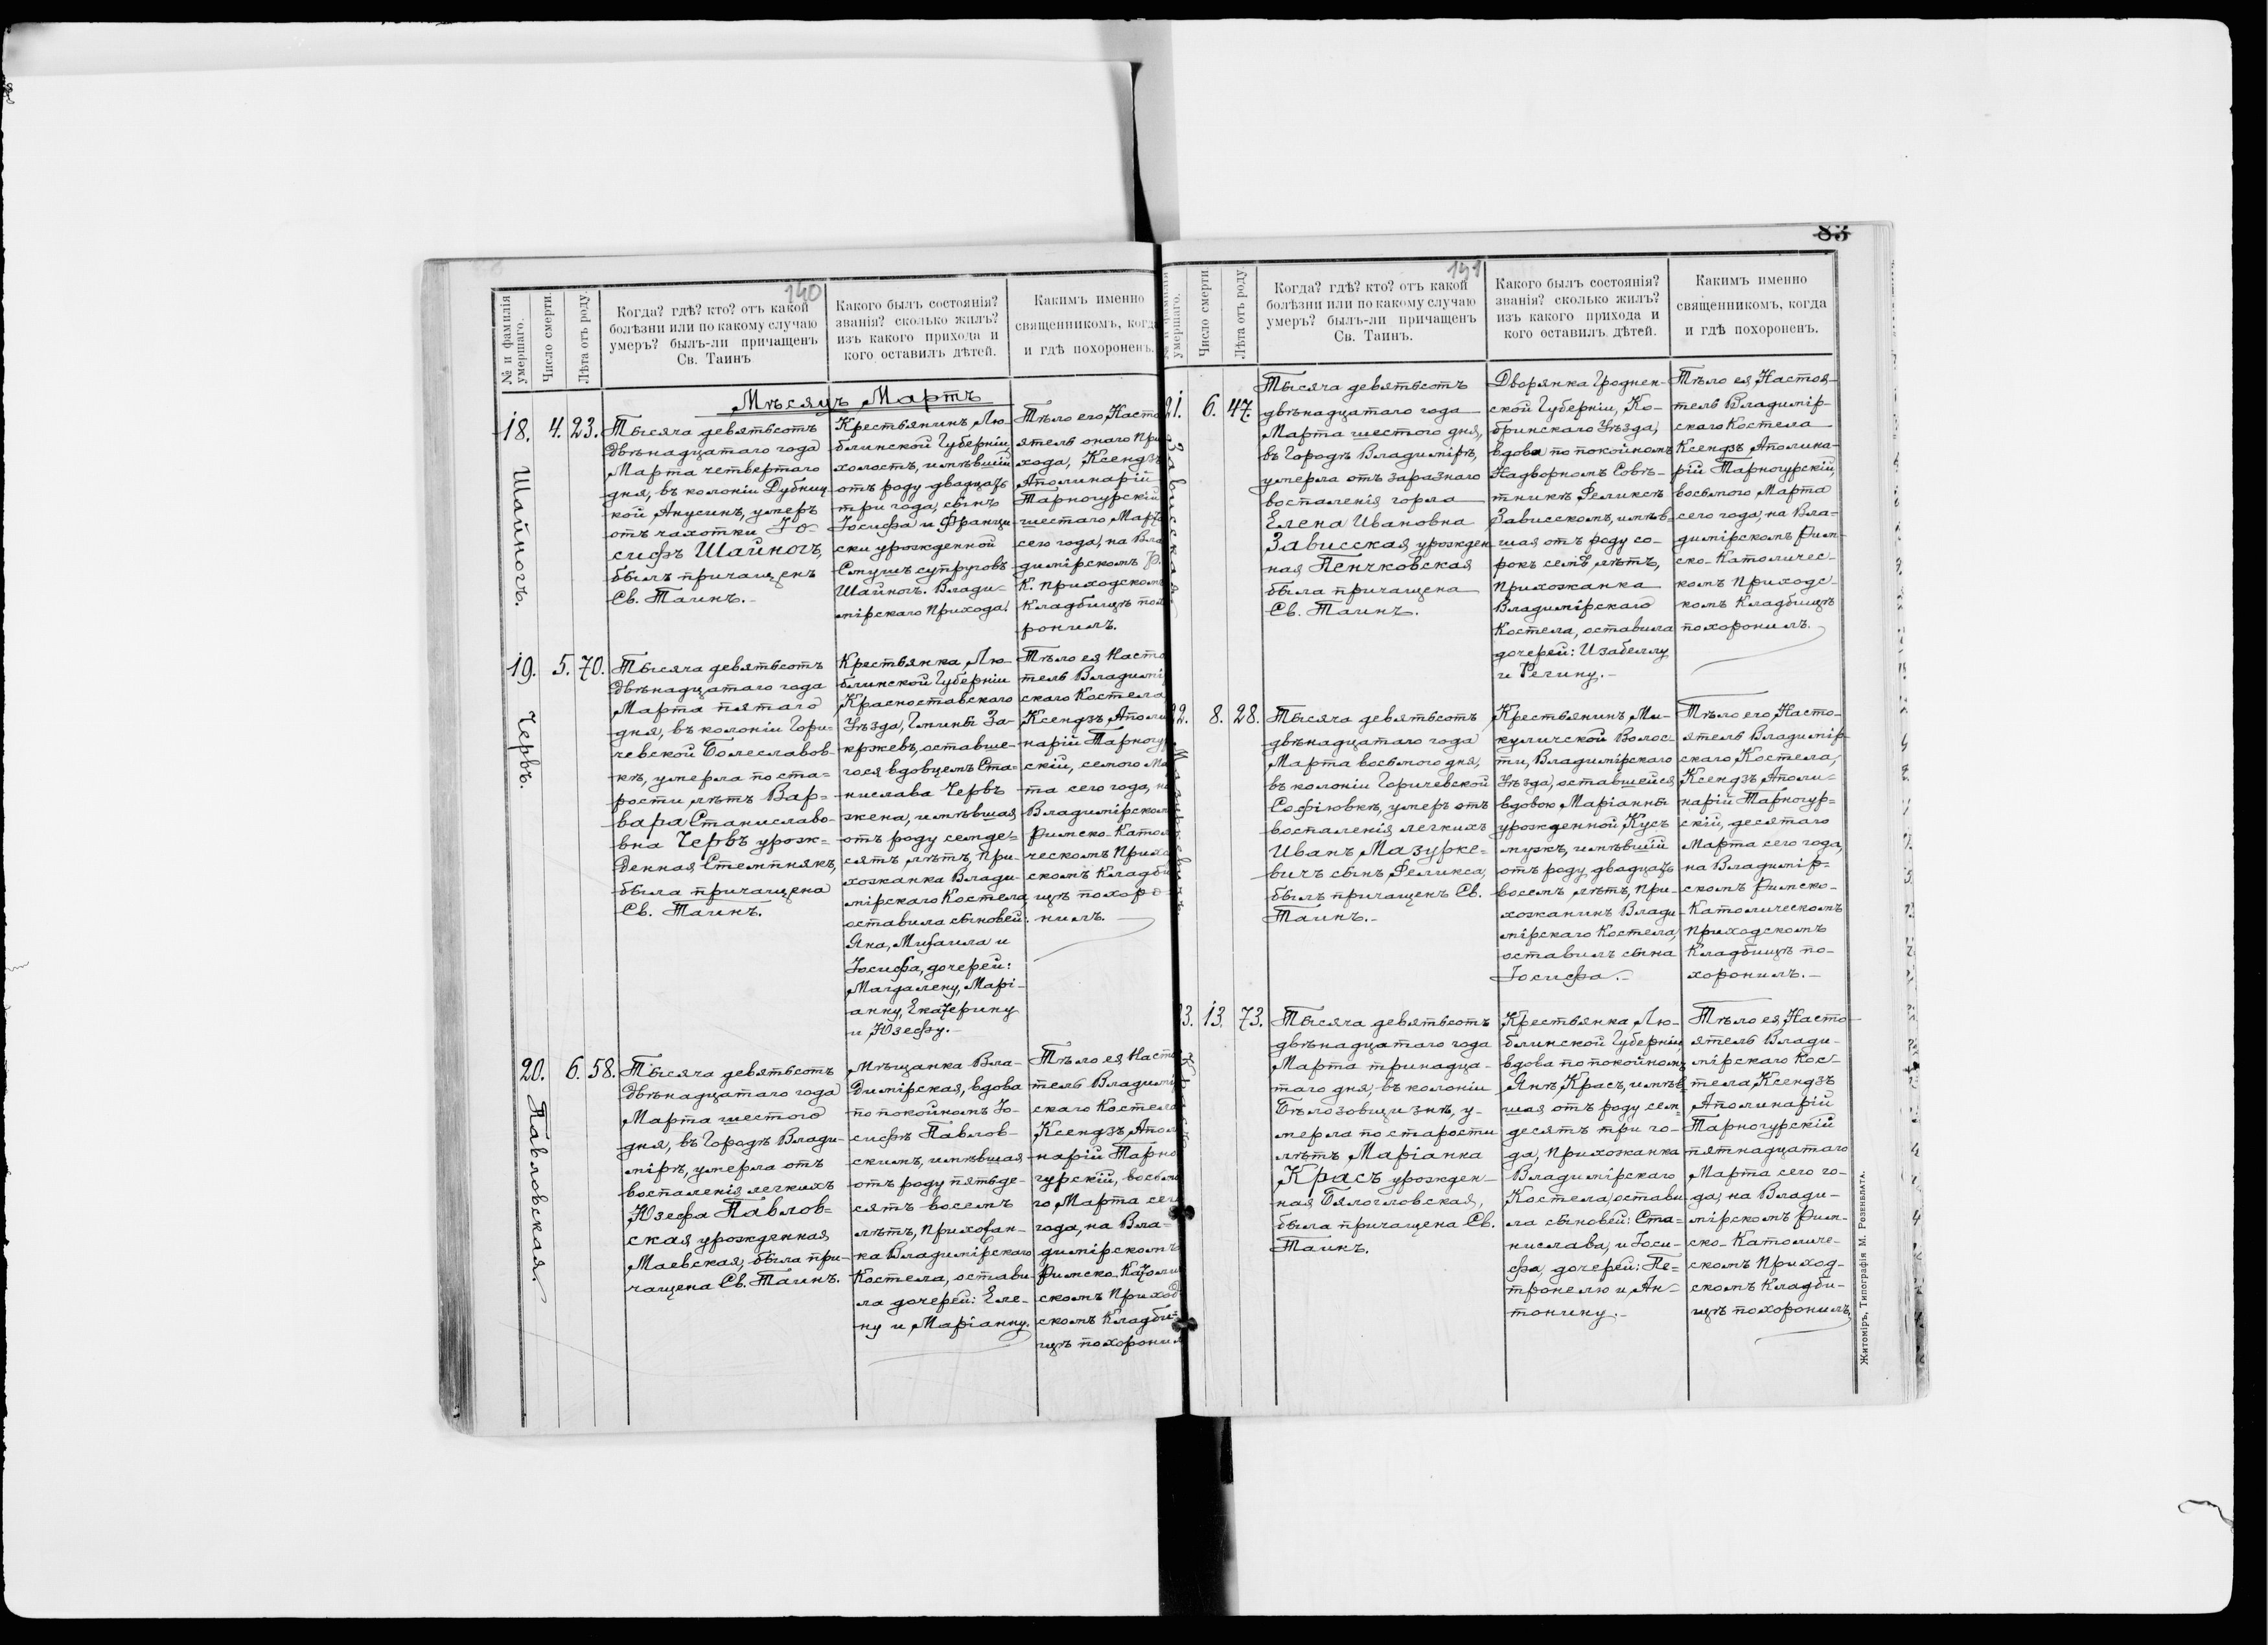 140
№ и фамилія
умершаго.
Число смерти.
Лѣта отъ роду.
Когда? гдѣ? кто? отъ какой
болѣзни или по какому случаю
умеръ? былъ-ли причащенъ
Св. Таинъ
Какого былъ состоянія?
званія? сколько жилъ?
изъ какого прихода и
кого оставилъ дѣтей.
Какимъ именно
священникомъ, когда
и гдѣ похороненъ.
Мѣсяцъ Мартъ
18.
Шайногъ.
4.
23.
Тысяча девятьсотъ
двѣнадцатаго года
Марта четвертаго
дня, въ колоніи Дубниц-
кой Анусинъ, умеръ
отъ чахотки Іо-
сифъ Шайногъ,
былъ причащенъ
Св. Таинъ.-
Крестьянинъ Лю-
блинской Губерніи,
холостъ, имѣвшій
отъ роду двадцать
три года, сынъ
Іосифа и Франци-
ски урожденной
Смушъ супруговъ
Шайногъ. Влади-
мірскаго Прихода.
Тѣло его, Насто
ятель онаго При
хода, Ксендзъ
Аполинарій
Тарногурскій
шестаго Марта
сего года, на Вла
димірскомъ Р.
К. Приходскомъ
Кладбищѣ пох
ронилъ.
19.
Червъ.
5.
70.
Тысяча девятьсотъ
двѣнадцатаго года
Марта пятаго
дня, въ колоніи Гори-
чевской Болеславов-
кѣ, умерла по ста-
рости лѣтъ Вар-
вара Станиславо-
вна Червъ урож-
денная Стемпнякъ,
была причащена
Св. Таинъ.
Крестьянка Лю-
блинской Губерніи
Красноставскаго
Уѣзда, Гмины За-
кржевъ, оставше-
гося вдовцемъ Ста-
нислава Червъ
жена, имѣвшая
отъ роду семде-
сятъ лѣтъ, при-
хожанка Влади-
мірскаго Костела,
оставила сыновей:
Яна, Михаила и
Іосифа, дочерей:
Магдалену, Марі-
анну, Екатерину
и Юзефу.-
Тѣло ея Насто
тель Владимі
скаго Костела
Ксендзъ Аполи
нарій Тарногу
скій, семого Ма
та сего года, н
Владимірском
Римско-Катол
ческомъ Прихо
скомъ Кладби
щѣ похоро-
нилъ.
20.
Павловская.
6.
58.
Тысяча девятьсотъ
двѣнадцатаго года
Марта шестого
дня, въ Городѣ Влади-
мірѣ, умерла отъ
воспаленія легкихъ
Юзефа Павлов-
ская урожденная
Маевская, была при-
чащена Св. Таинъ.
Мѣщанка Вла-
димірская, вдова
по покойномъ Іо-
сифѣ Павлов-
скимъ, имѣвшая
отъ роду пятьде-
сятъ восемъ
лѣтъ, прихожан-
ка Владимірскаго
Костела, остави-
ла дочерей: Еле-
ну и Маріанну.
Тѣло ея Насто
тель Владимі
скаго Костела
Ксендзъ Апол
нарій Тарно
гурскій, восьмо
го Марта сег
года, на Вла-
димірскомъ
Римско-Католи
скомъ Приход
скомъ Кладби-
щѣ похоронил
83
141
умершаго.
Число смерти.
Лѣта отъ роду.
Когда? гдѣ? кто? отъ какой
болѣзни или по какому случаю
умеръ? былъ-ли причащенъ
Св. Таинъ.
Какого былъ состоянія?
званія? сколько жилъ?
изъ какого прихода и
кого оставилъ дѣтей.
Какимъ именно
священникомъ, когда
и гдѣ похороненъ.
21.
Зависская.
6.
47.
Тысяча девятьсотъ
двѣнадцатаго года
Марта шестого дня,
въ Городѣ Владимірѣ,
умерла отъ заразнаго
воспаленія горла
Елена Ивановна
Зависская урожден-
ная Пенчковская
была причащена
Св. Таинъ.
Дворянка Гроднен-
ской Губерніи, Ко-
бринскаго Уѣзда,
вдова по покойномъ
Надворномъ Совѣ-
тникѣ Феликсѣ
Зависскомъ, имѣв-
шая отъ роду со-
рокъ семь лѣтъ,
прихожанка
Владимірскаго
Костела, оставила
дочерей: Изабеллу
и Регину.-
Тѣло ея, Настоя-
тель Владимір-
скаго Костела
Ксендзъ Аполина-
рій Тарногурскій,
восьмого Марта
сего года, на Вла-
димірскомъ Рим-
ско-Католичес-
комъ Приходс-
комъ Кладбищѣ
похоронилъ.
22.
Мазуркевичъ
8.
28.
Тысяча девятьсотъ
двѣнадцатаго года
Марта восьмого дня,
въ колоніи Горичевской
Софіювкѣ, умеръ отъ
воспаленія легкихъ
Иванъ Мазурке-
вичъ сынъ Феликса,
былъ причащенъ Св.
Таинъ.-
Крестьянинъ Ми-
куличской Волос-
ти, Владимірскаго
Уѣзда, оставшейся
вдовою Маріанны
урожденной Кусъ
мужъ, имѣвшій
отъ роду двадцать
восемъ лѣтъ, при-
хожанинъ Влади-
мірскаго Костела,
оставилъ сына
Іосифа.-
Тѣло его, Насто-
ятель Владимір-
скаго Костела,
Ксендзъ Аполи-
нарій Тарногур-
скій, десятаго
Марта сего года,
на Владимір-
скомъ Римско-
Католическомъ
приходскомъ
Кладбищѣ по-
хоронилъ.-
23.
Красъ
13.
73.
Тысяча девятьсотъ
двѣнадцатаго года
Марта тринадца-
таго дня, въ колоніи
Бѣлозовщизнѣ, у-
мерла по старости
лѣтъ Маріанна
Красъ урожден-
ная Бялогловская,
была причащена Св.
Таинъ.
Крестьянка Лю-
блинской Губерніи,
вдова по покойномъ
Янѣ Красъ, имѣв-
шая отъ роду сем-
десятъ три го-
да, прихожанка
Владимірскаго
Костела, остави-
ла сыновей: Ста-
нислава, и Іоси-
фа, дочерей: Пе-
тронелю и Ан-
тонину.-
Тѣло ея, Насто-
ятель Влади-
мірскаго Кос-
тела, Ксендзъ
Аполинарій
Тарногурскій
пятнадцатаго
Марта сего го-
да, на Влади-
мірскомъ Рим-
ско-Католиче-
скомъ Приход-
скомъ Кладби-
щѣ похоронилъ.
Житоміръ, Типографія М. Розенблата.